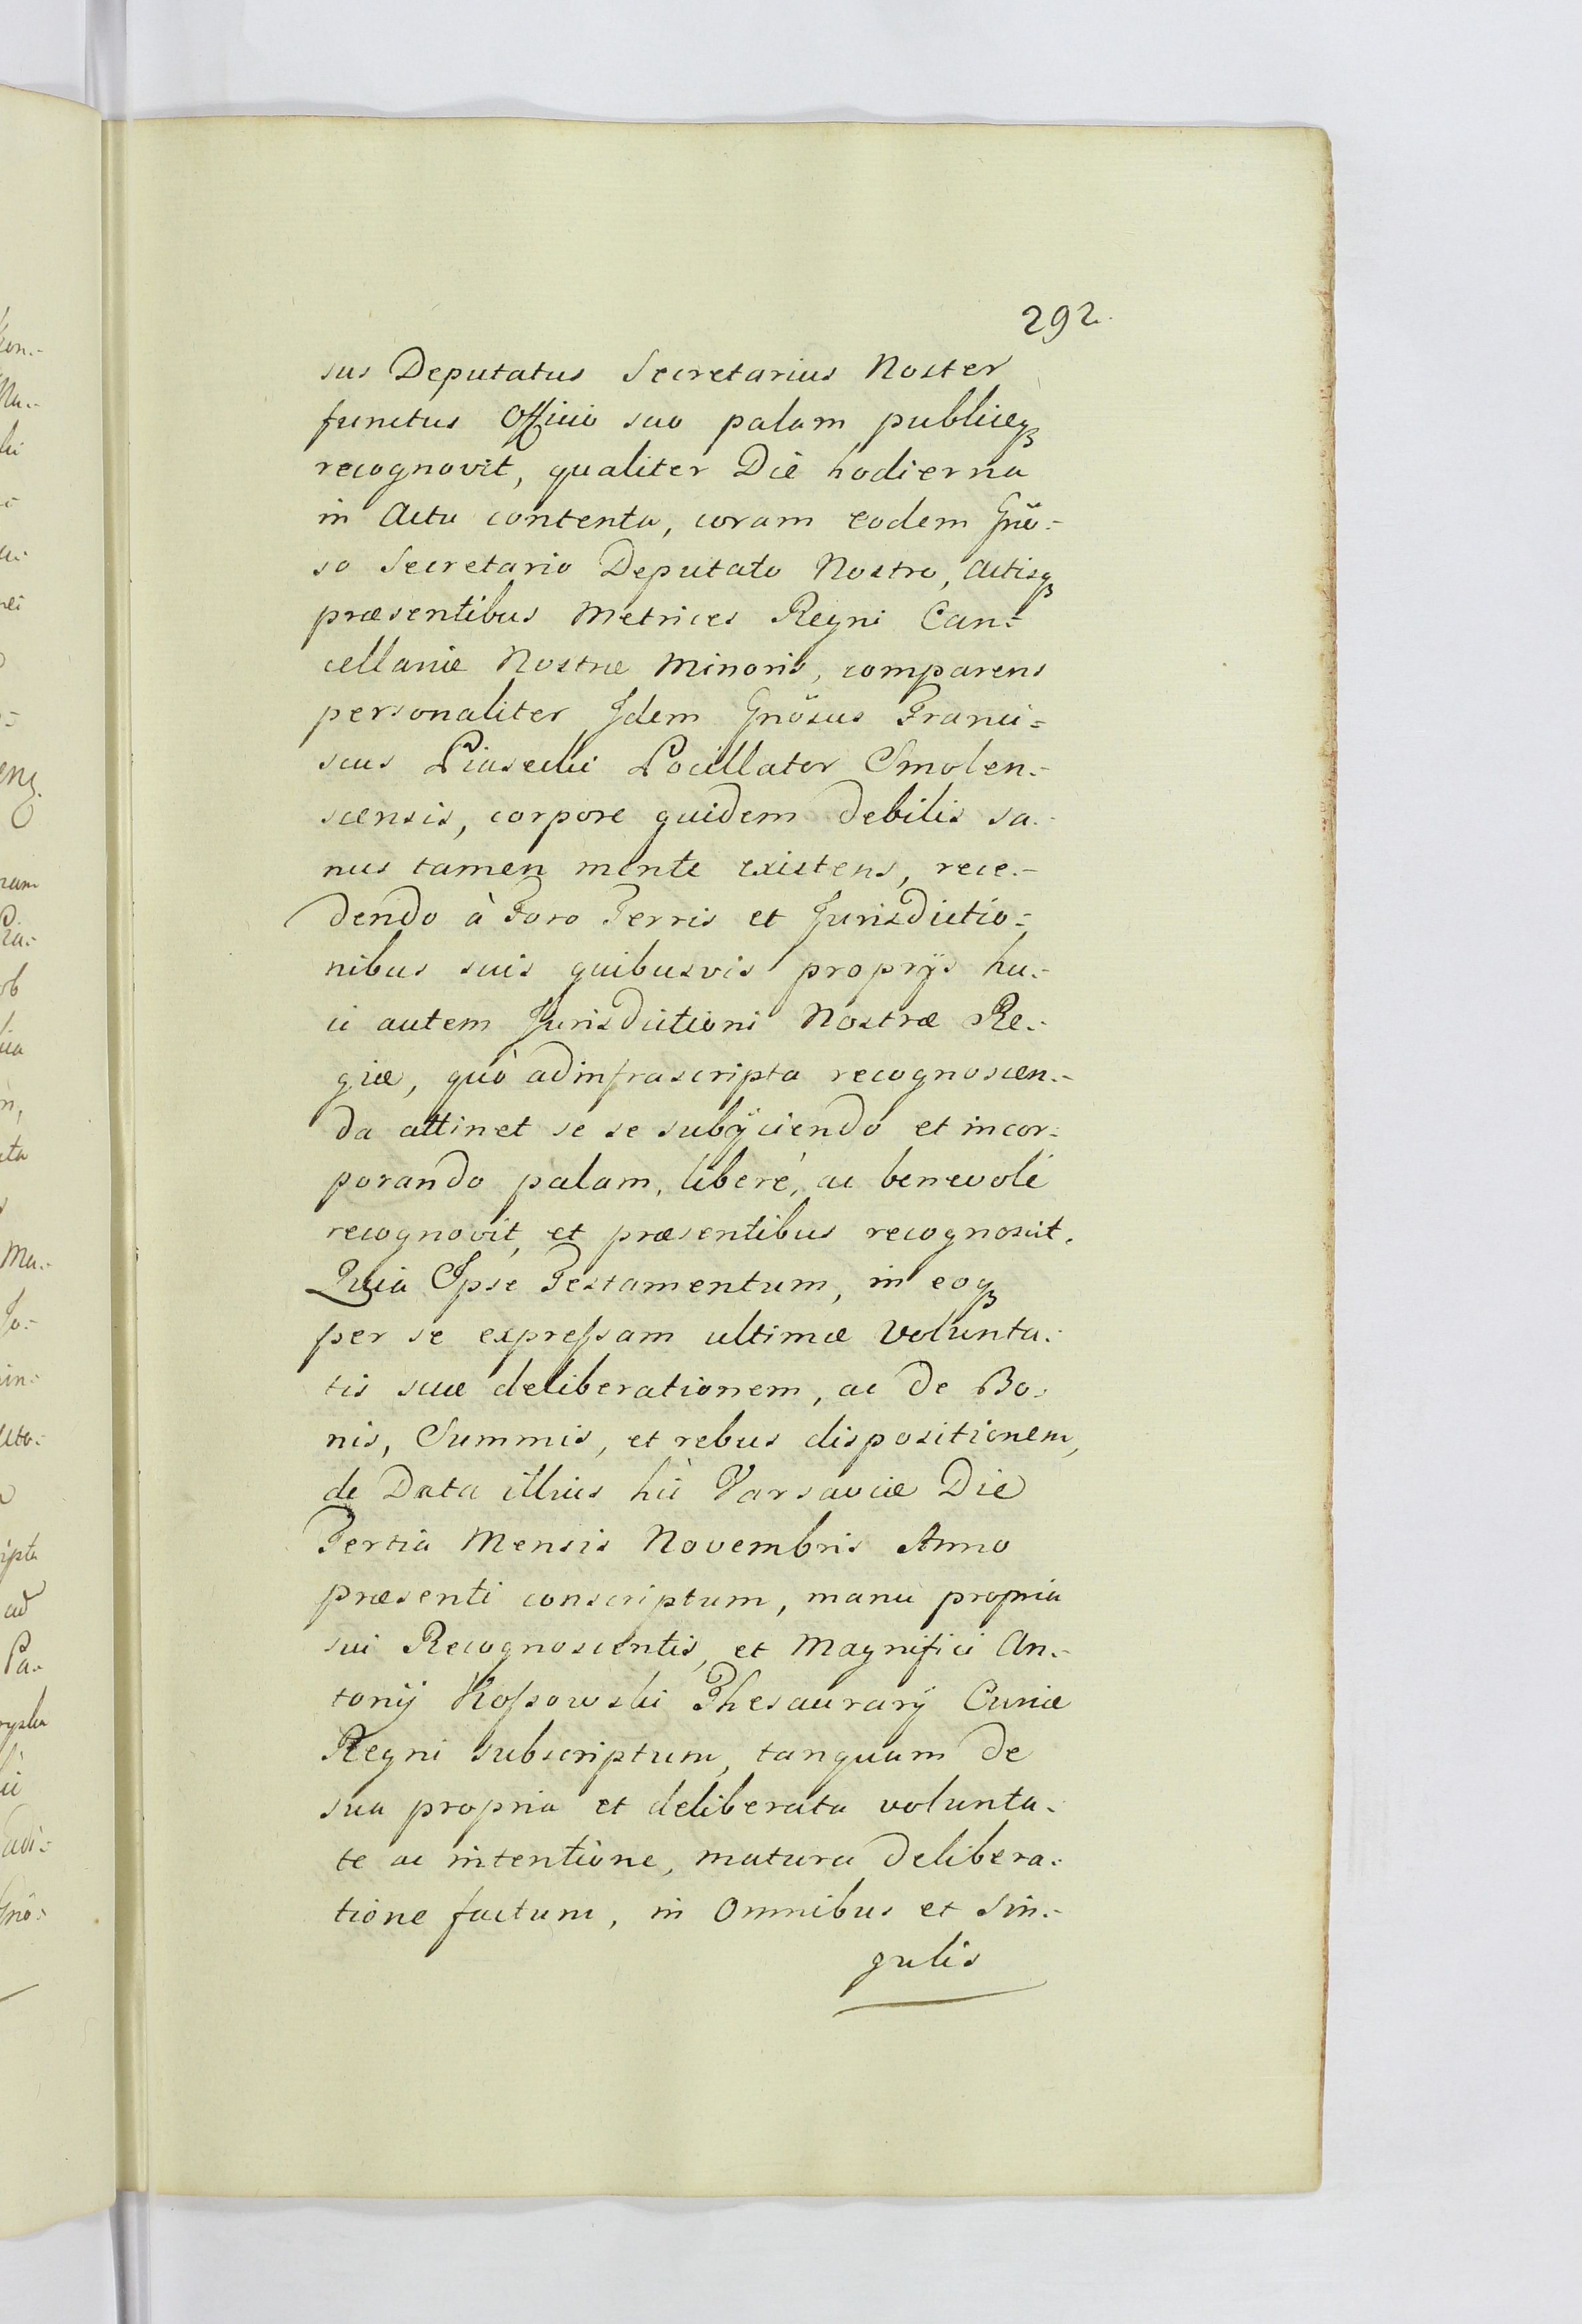 292.
sus Deputatus Secretarius Noster
functus Officio suo palam publiceqꝫ
recognovit, qualiter Die hodierna
in Actu contenta, coram eodem Gnö-
so Secretario Deputato Nostro, Actisqꝫ
præsentibus Metrices Regni Can-
cellariæ Nostræ Minoris, comparens
personaliter Idem Gnösus Franci=
scus Piasecki Pocillator Smolen-
scensis, corpore quidem debilis sa-
nus tamen mente existens, rece-
dendo à Foro Terris et Jurisdictio=
nibus suis quibusvis proprijs hu-
ic autem Jurisdictioni Nostræ Re-
giæ, quò adinfrascripta recognoscen-
da attinet se se subijciendo et incor-
porando palam, liberè, ac benevolè
recognovit, et præsentibus recognoscit.
Quia Ipse Testamentum, in eoqꝫ
per se expreſsam ultimæ volunta-
tis suæ deliberationem, ac de Bo-
nis, Summis, et rebus dispositionem,
de Data illius hìc Varsaviæ Die
Tertia Mensis Novembris Anno
præsenti conscriptum, manu propria
sui Recognoscentis, et Magnifici An-
tonij Koſsowski Thesaurarij Curiæ
Regni subscriptum, tanquam de
sua propria et deliberata volunta-
te ac intentione, matura delibera-
tione factum, in Omnibus et Sin-
gulis